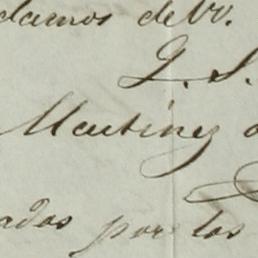 damos de VV.
Martinez
ados por los